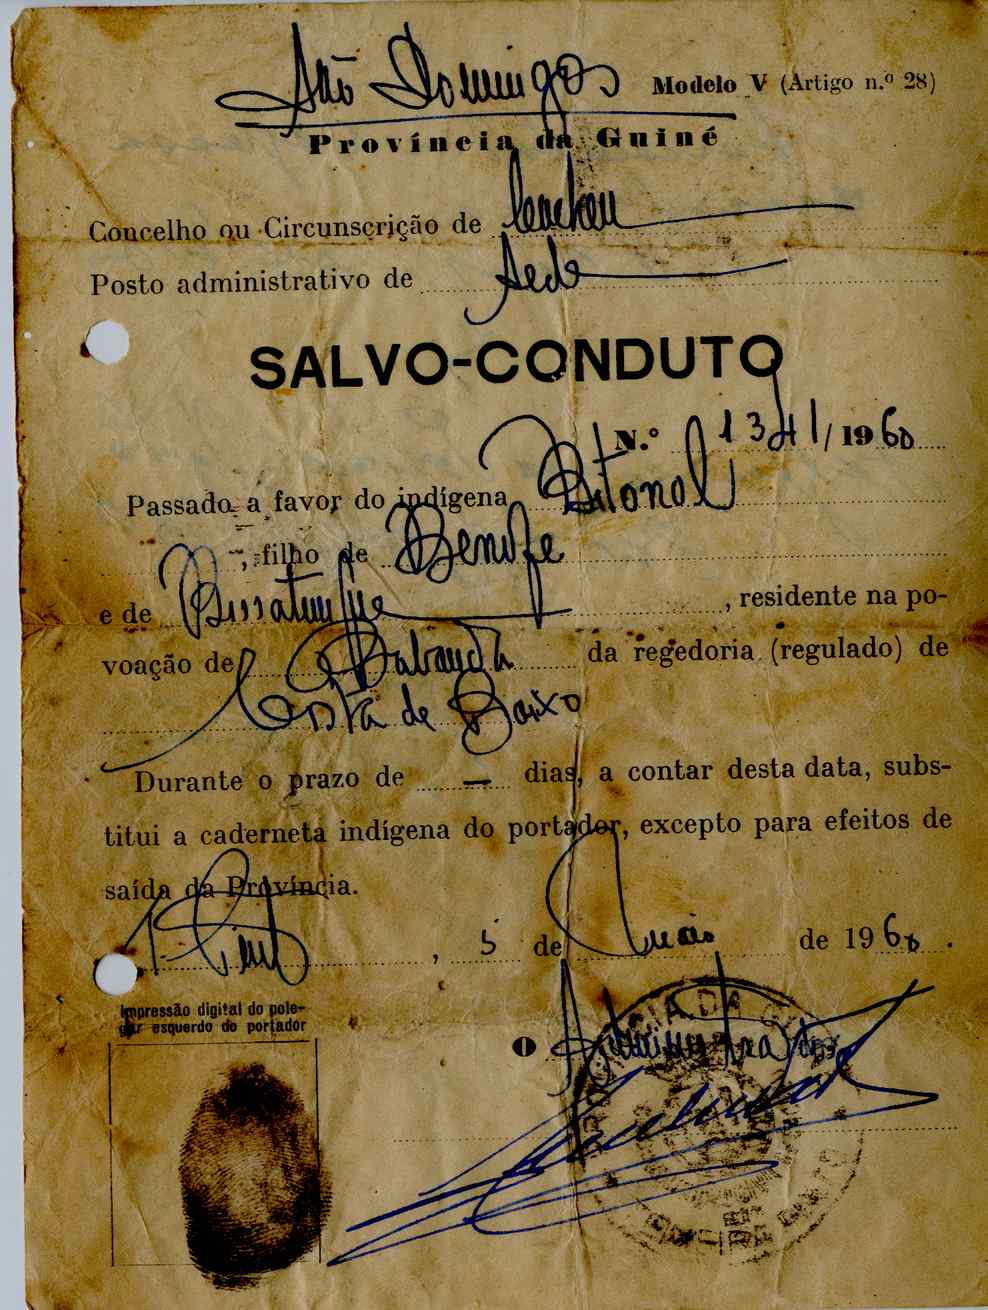 São Domingos
Modelo V (Artigo n.º 28)
Província da Guiné
Concelho ou Circunscrição de Cacheu
Posto administrativo de Sede
SALVO-CONDUTO
N.º 1341/1960
Passado a favor do indígena Bitonol
, filho de
e de , residente na po-
voação de da regedoria (regulado) de
Costa de Baixo
Durante o prazo de — dias, a contar desta data, subs-
titui a caderneta indígena do portador, excepto para efeitos de
saída da Província.
, 5 de Maio de 1960.
Impressão digital do pole-
gar esquerdo do portador
O Administrador